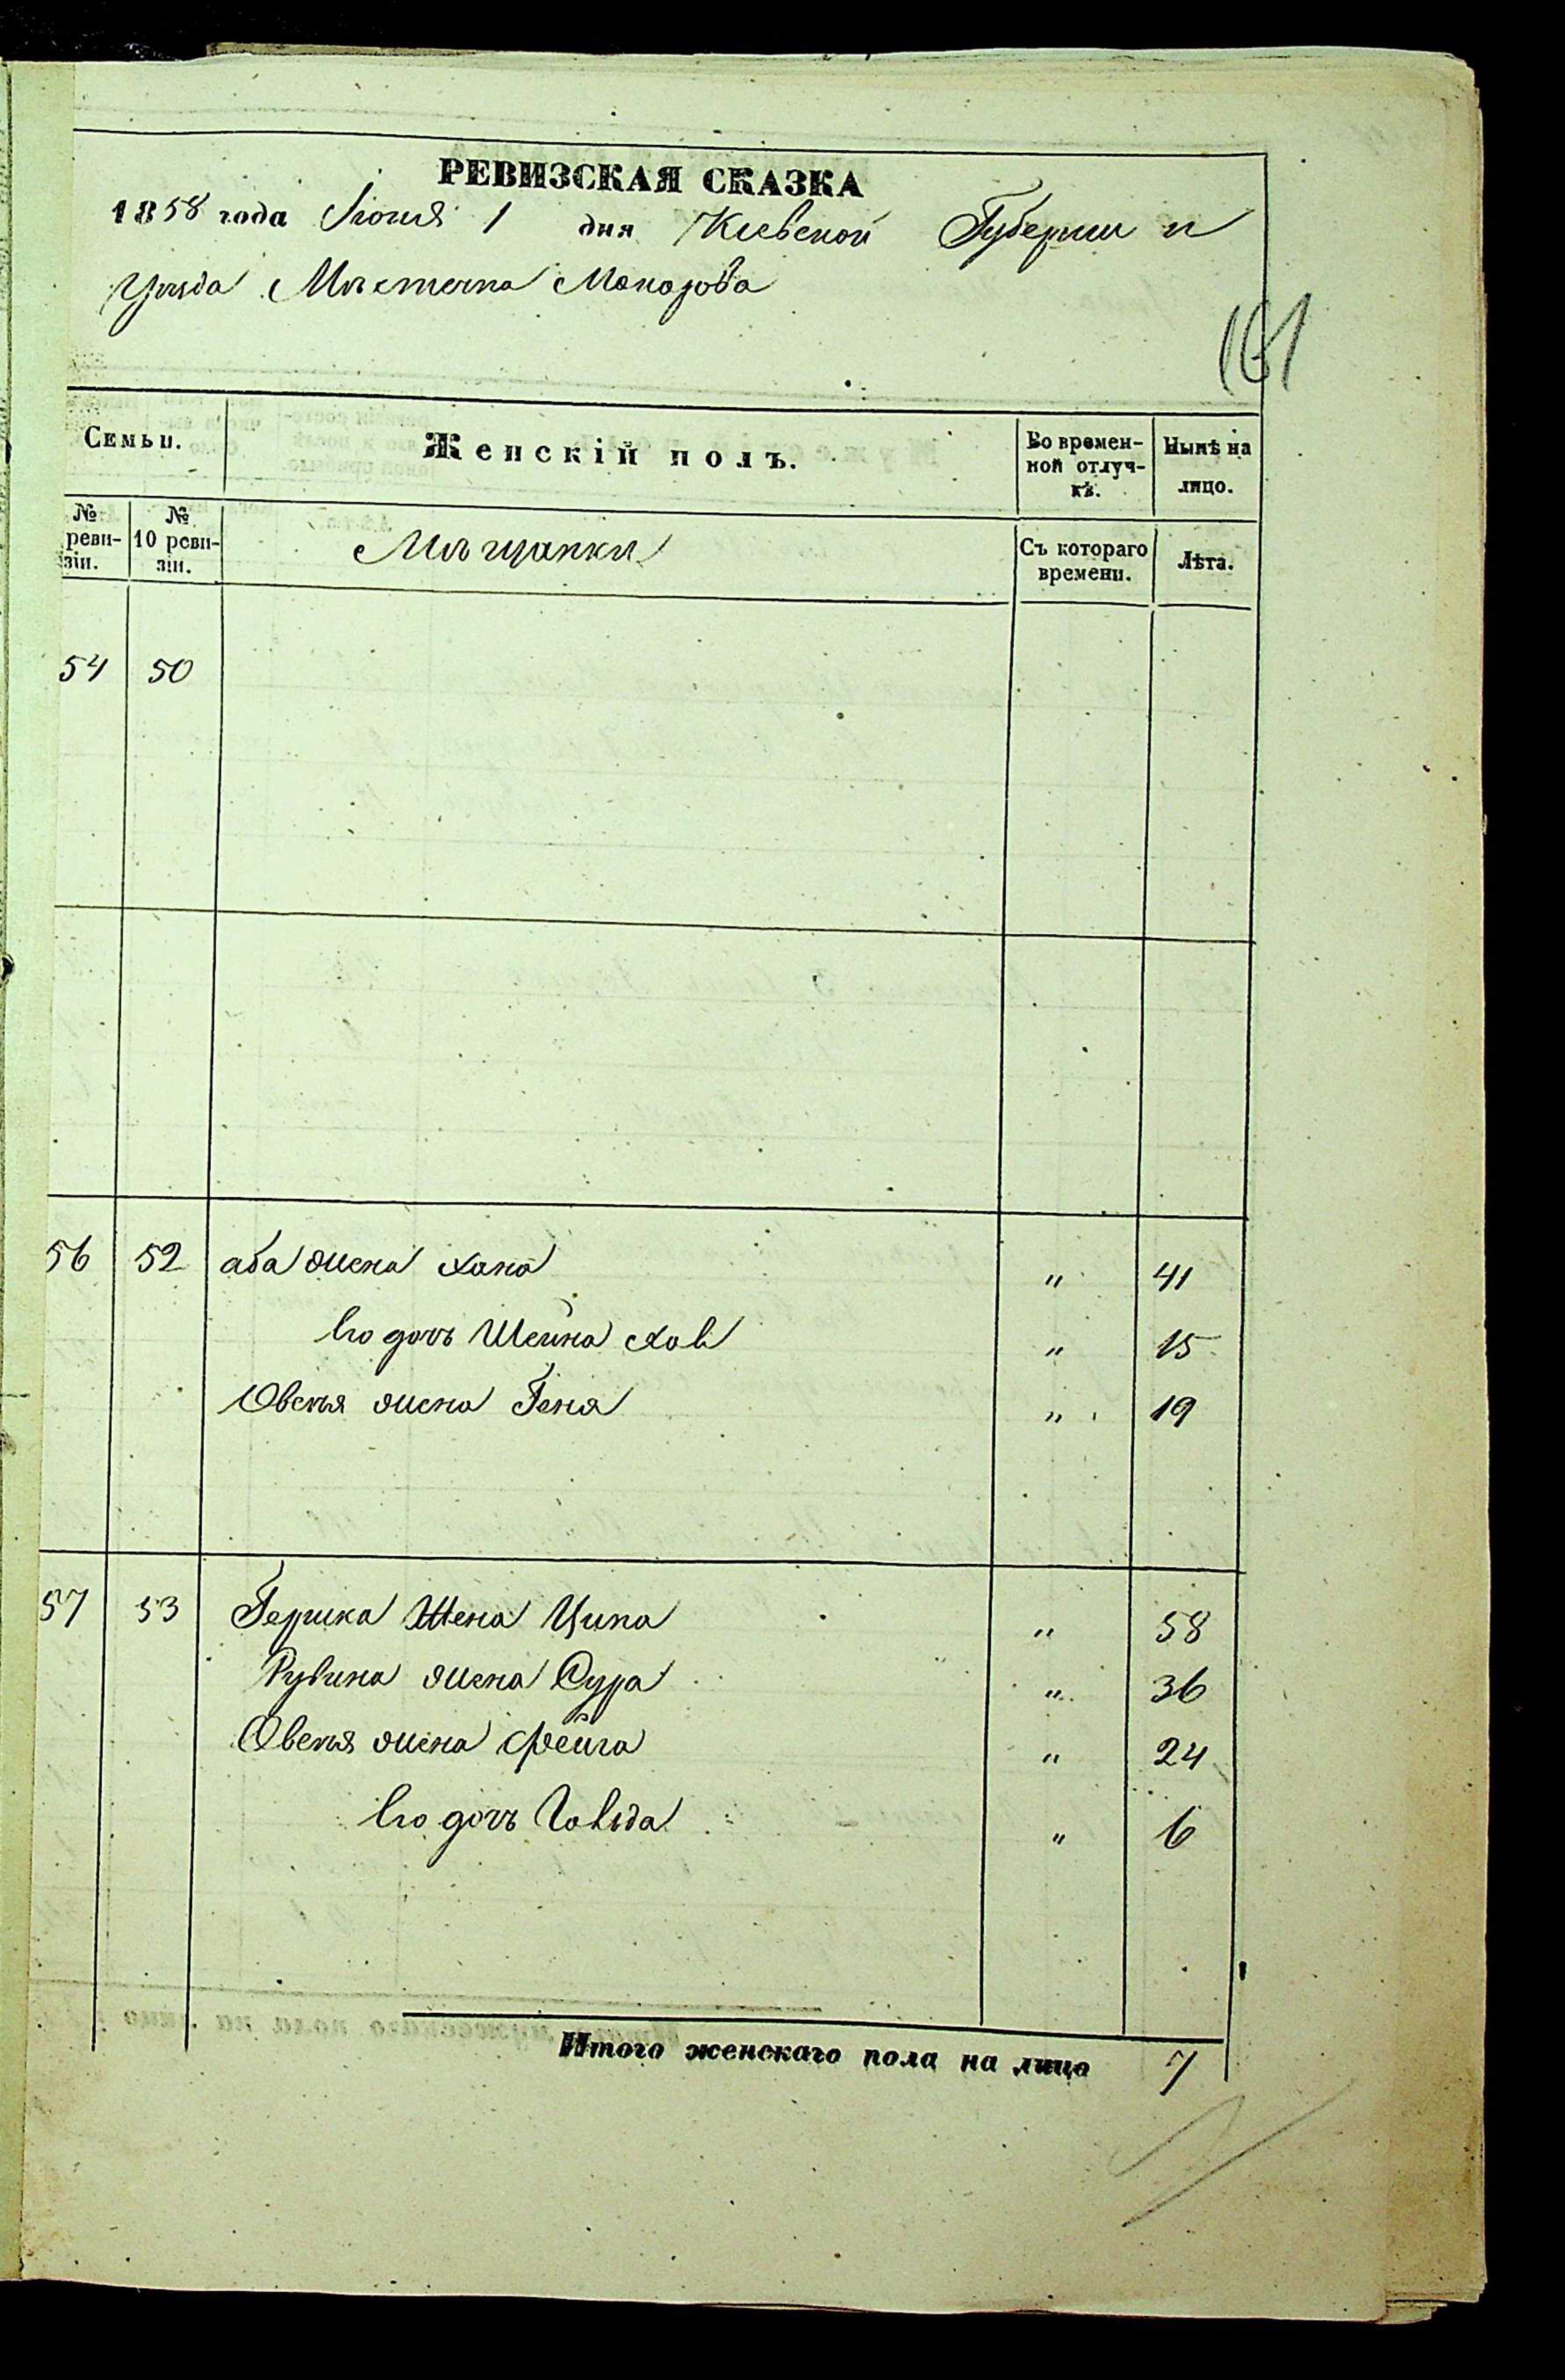 РЕВИЗСКАЯ СКАЗКА
1858 года Іюня 1 дня Кіевской Губерніи и
Уѣзда Мѣстечка Макарова
161
Семьи. Женскій полъ. Во времен- Нынѣ на
ной отлуч- лицо.
кѣ.
№ №
реви- 10 реви- Мѣщанки Съ котораго Лѣта.
зіи. зіи. времени.
54 50
56 52 аба жена Хана " 41
Его дочь Шейна Хав " 15
Овсея жена Геня " 19
57 53 Гершка Жена Ципа " 58
Рувина жена Сура " 36
Овсея жена Фейга " 24
Его дочь Гольда " 6
Итого женскаго пола на лицо 7